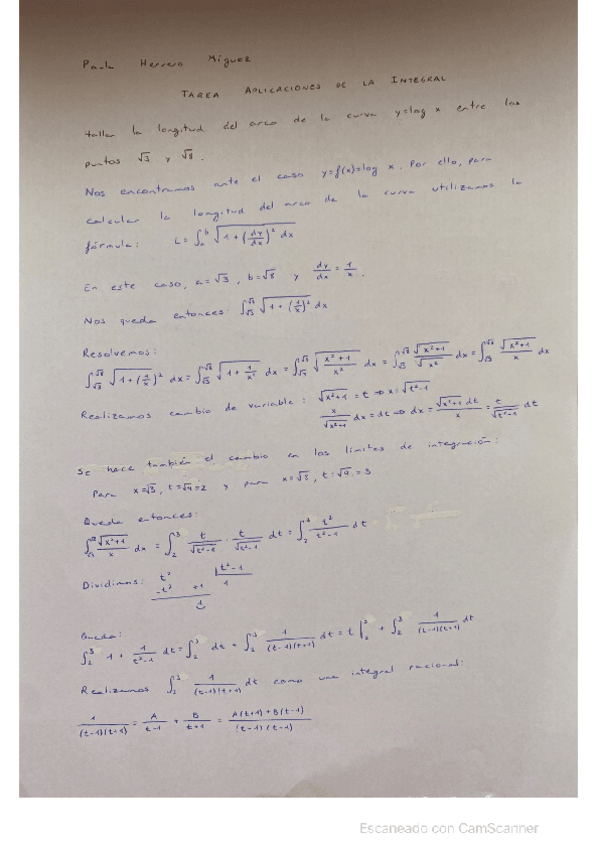 Paula Herrero Míguez
TAREA APLICACIONES DE LA INTEGRAL
Hallar la longitud del arco de la curva y=log x entre los
puntos √3 y √8.
Nos encontramos ante el caso y=f(x)=log x. Por ello, para
calcular la longitud del arco de la curva utilizamos la
fórmula: L=∫_a^b √(1+(dy/dx)² dx)
En este caso, a=√3, b=√8 y dy/dx = 1/x.
Nos queda entonces: ∫_√3^√8 √(1+(1/x)²) dx
Resolvemos:
∫_√3^√8 √(1+(1/x)²) dx = ∫_√3^√8 √(1+1/x²) dx = ∫_√3^√8 √((x²+1)/x²) dx = ∫_√3^√8 √(x²+1)/√(x²) dx = ∫_√3^√8 √(x²+1)/x dx
Realizamos cambio de variable: √(x²+1) = t ⇒ x=√(t²-1)
x/√(x²+1) dx = dt ⇒ dx = √(x²+1) dt/x = t/√(t²-1) dt
Se hace también el cambio en los límites de integración:
Para x=√3, t=√4=2 y para x=√8, t=√9=3
Queda entonces:
∫_√3^√8 √(x²+1)/x dx = ∫_2^3 t/√(t²-1) · t/√(t²-1) dt = ∫_2^3 t²/(t²-1) dt
Dividimos: t² |t²-1
-t² +1 1
1
Queda:
∫_2^3 1 + 1/(t²-1) dt = ∫_2^3 dt + ∫_2^3 1/((t-1)(t+1)) dt = t |_2^3 + ∫_2^3 1/((t-1)(t+1)) dt
Realizamos ∫_2^3 1/((t-1)(t+1)) dt como una integral racional:
1/((t-1)(t+1)) = A/(t-1) + B/(t+1) = (A(t+1)+B(t-1))/((t-1)(t-1))
Escaneado con CamScanner